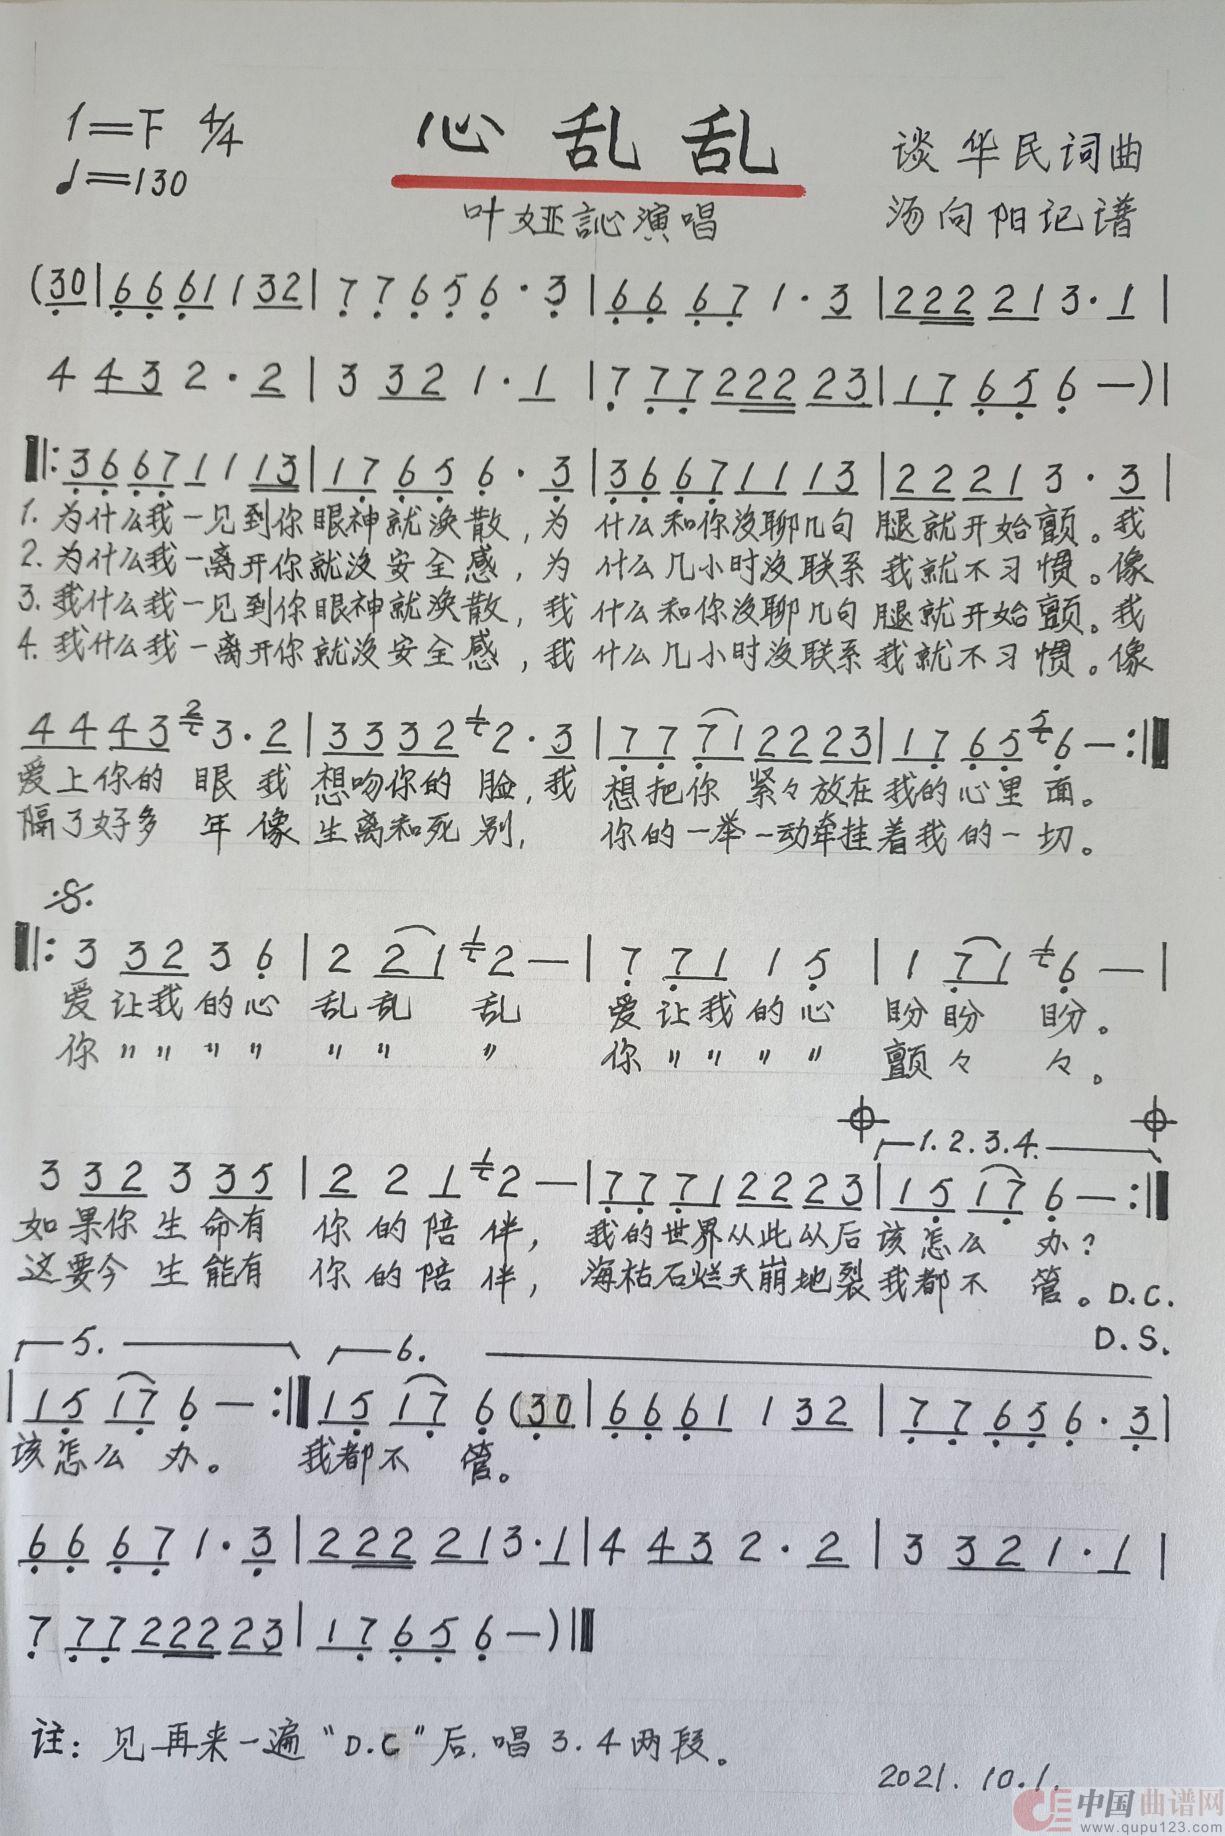 1=F 4/4
心乱乱
谈华民词曲
♩=130
叶娅訫演唱
汤向阳记谱
(30|6661132|77656·3|66671·3|222213·1|
4432·2|3321·1|777222223|17656—)|
‖:3667111 13|17656·3|36671113|22213·3|
1.为什么我一见到你眼神就涣散,为什么和你没聊几句腿就开始颤。我
2.为什么我一离开你就没安全感,为什么几小时没联系我就不习惯。像
3.我什么我一见到你眼神就涣散,我什么和你没聊几句腿就开始颤。我
4.我什么我一离开你就没安全感,我什么几小时没联系我就不习惯。像
4443 2 3·2|3332 1 2·3|77712223|1765 5 6—:‖
爱上你的眼我想吻你的脸,我想把你紧々放在我的心里面。
隔了好多年像生离和死别,你的一举一动牵挂着我的一切。
𝄋
‖:33236|221 1 2—|77115|171 1 6—|
爱让我的心乱乱乱爱让我的心盼盼盼。
你〃〃〃〃〃〃〃你〃〃〃〃颤々々。
1.2.3.4.
332335|221 1 2—|77712223|15176—:‖
如果你生命有你的陪伴,我的世界从此以后该怎么办?
这要今生能有你的陪伴,海枯石烂天崩地裂我都不管。D.C.
D.S.
5. 6.
|15176—:‖15176(30|6661132|77656·3|
该怎么办。我都不管。
66671·3|222213·1|4432·2|3321·1|
777222223|17656—)‖
注:见再来一遍“D.C”后,唱3.4两段。
2021.10.1.
中国曲谱网
www.qupu123.com